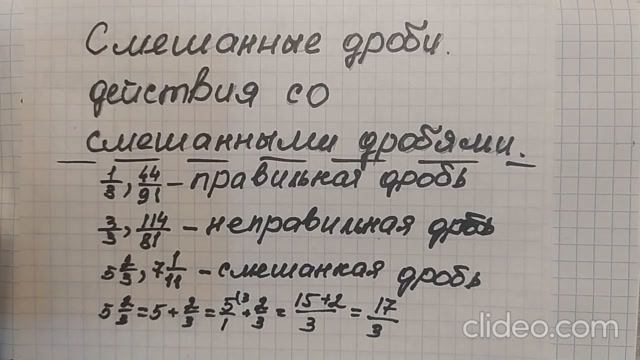 Смешанные дроби.
действия со
смешанными дробями.
1/3, 44/91 – правильная дробь
3/3, 114/81 – неправильная дробь
5 2/3, 7 1/11 – смешанная дробь
5 2/3 = 5 + 2/3 = 5/1 (3 + 2/3 = 15+2/3 = 17/3
clideo.com